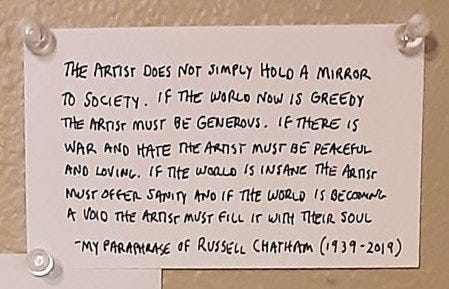 THE ARTIST DOES NOT SIMPLY HOLD A MIRROR
TO SOCIETY. IF THE WORLD NOW IS GREEDY
THE ARTIST MUST BE GENEROUS. IF THERE IS
WAR AND HATE THE ARTIST MUST BE PEACEFUL
AND LOVING. IF THE WORLD IS INSANE THE ARTIST
MUST OFFER SANITY AND IF THE WORLD IS BECOMING
A VOID THE ARTIST MUST FILL IT WITH THEIR SOUL
-MY PARAPHRASE OF RUSSELL CHATHAM (1939-2019)